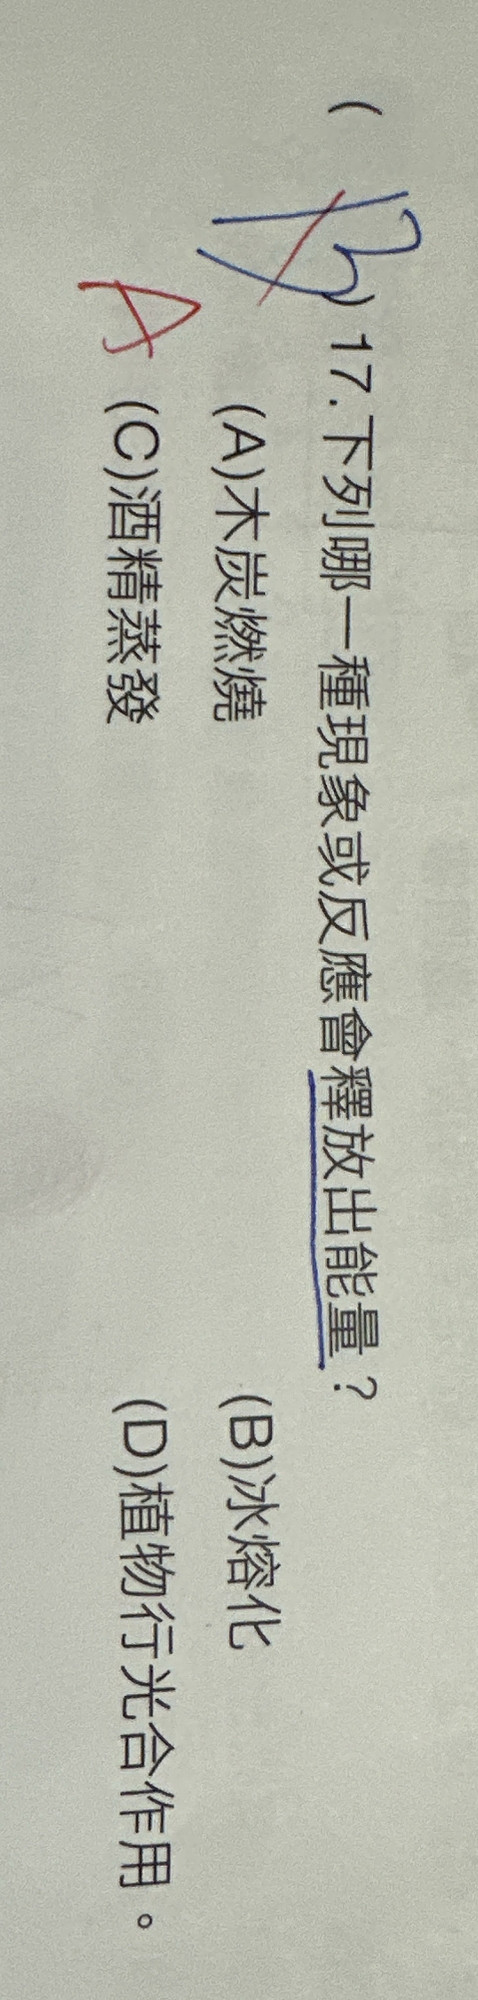 ( B ) 17.下列哪一種現象或反應會釋放出能量？
A
(A)木炭燃燒 (B)冰熔化
(C)酒精蒸發 (D)植物行光合作用。